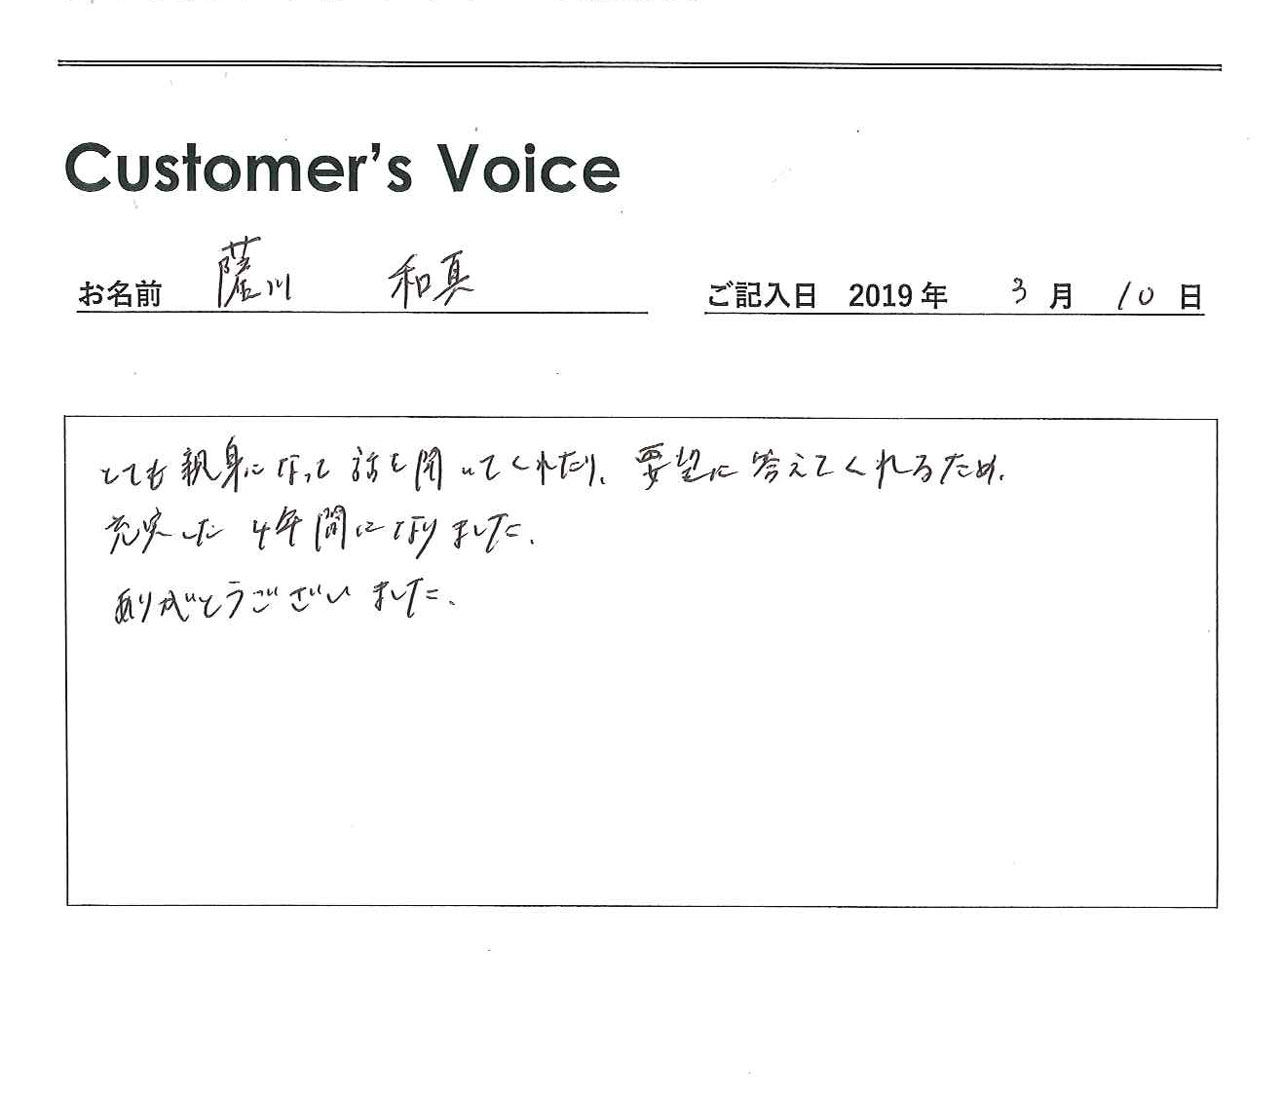 Customer's Voice
お名前 薩川 和真
ご記入日 2019年 3月 10日
とても親身になって話を聞いてくれたり、要望に答えてくれるため、
充実した4年間になりました。
ありがとうございました。